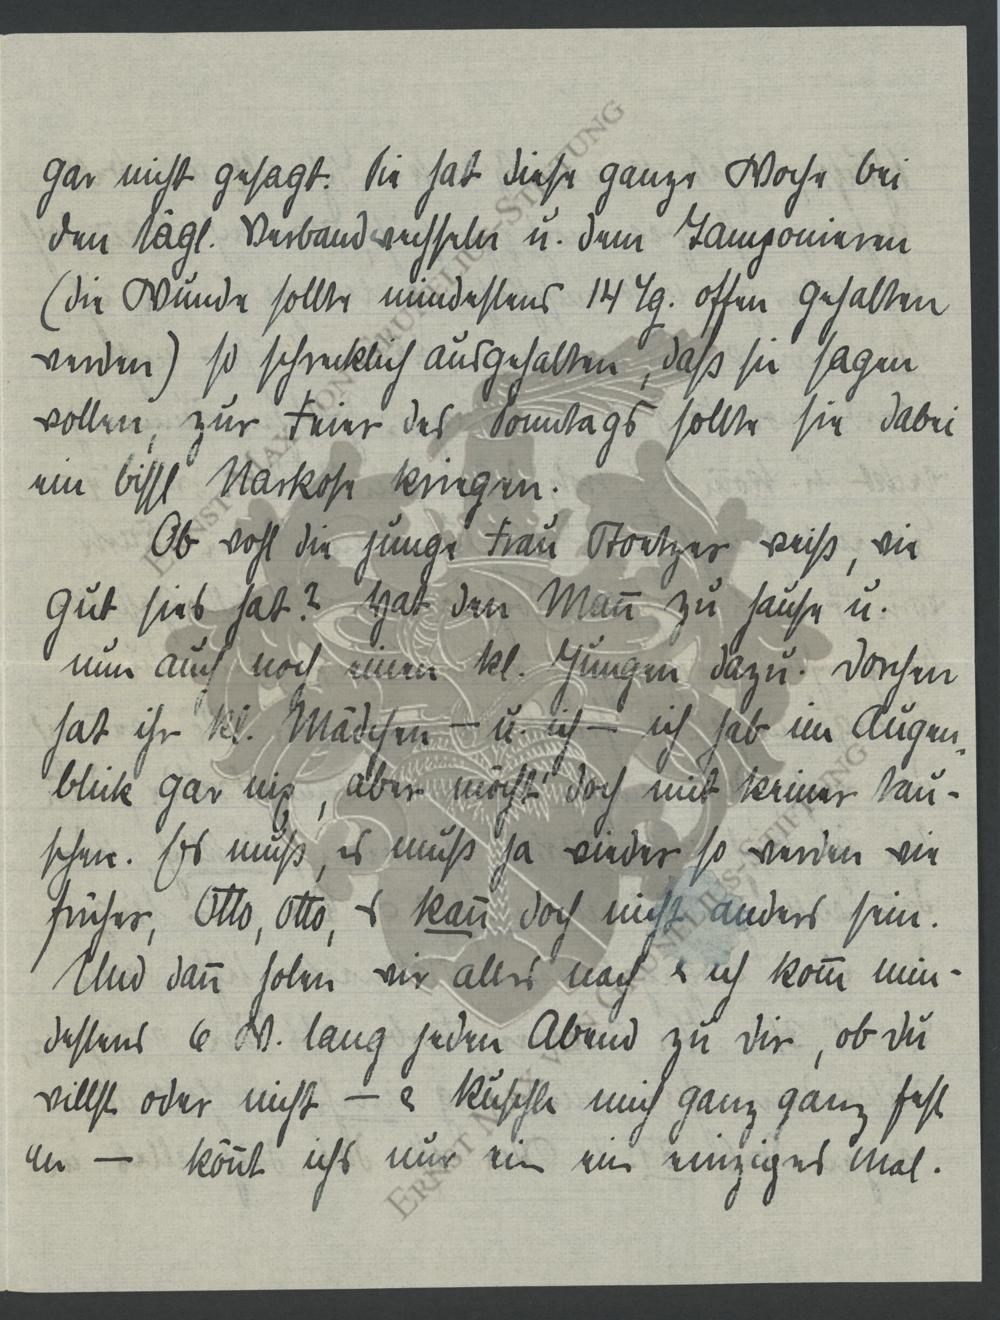 gar nicht gesagt. Sie hat diese ganze Woche bei
den tägl. Verbandwechseln u. dem Tamponieren
(die Wunde sollte mindestens 14 Tg. offen gehalten
werden) so schrecklich ausgehalten, daß sie sagen
wollen, zur Feier des Sonntags sollte sie dabei
ein bissl Narkose kriegen.
Ob wohl die junge Frau weiß, wie
gut sies hat? Hat den Mañ zu hause u.
nun auch noch einen kl. Jungen dazu. Dorchen
hat ihr kl. Mädchen — u. ich — ich hab im Augen-
blick gar nix, aber möcht' doch mit keiner tau-
schen. Es muß, es muß ja wieder so werden wie
früher, Otto, Otto, es kañ doch nicht anders sein.
Und dañ holen wir alles nach & ich kom̄ min-
destens 6 W. lang jeden Abend zu dir, ob du
willst oder nicht — & kuschle mich ganz ganz fest
an — köñt ichs nur ein ein einziges Mal.
ERNST MAX VON GRUNELIUS-STIFTUNG
ERNST MAX VON GRUNELIUS-STIFTUNG